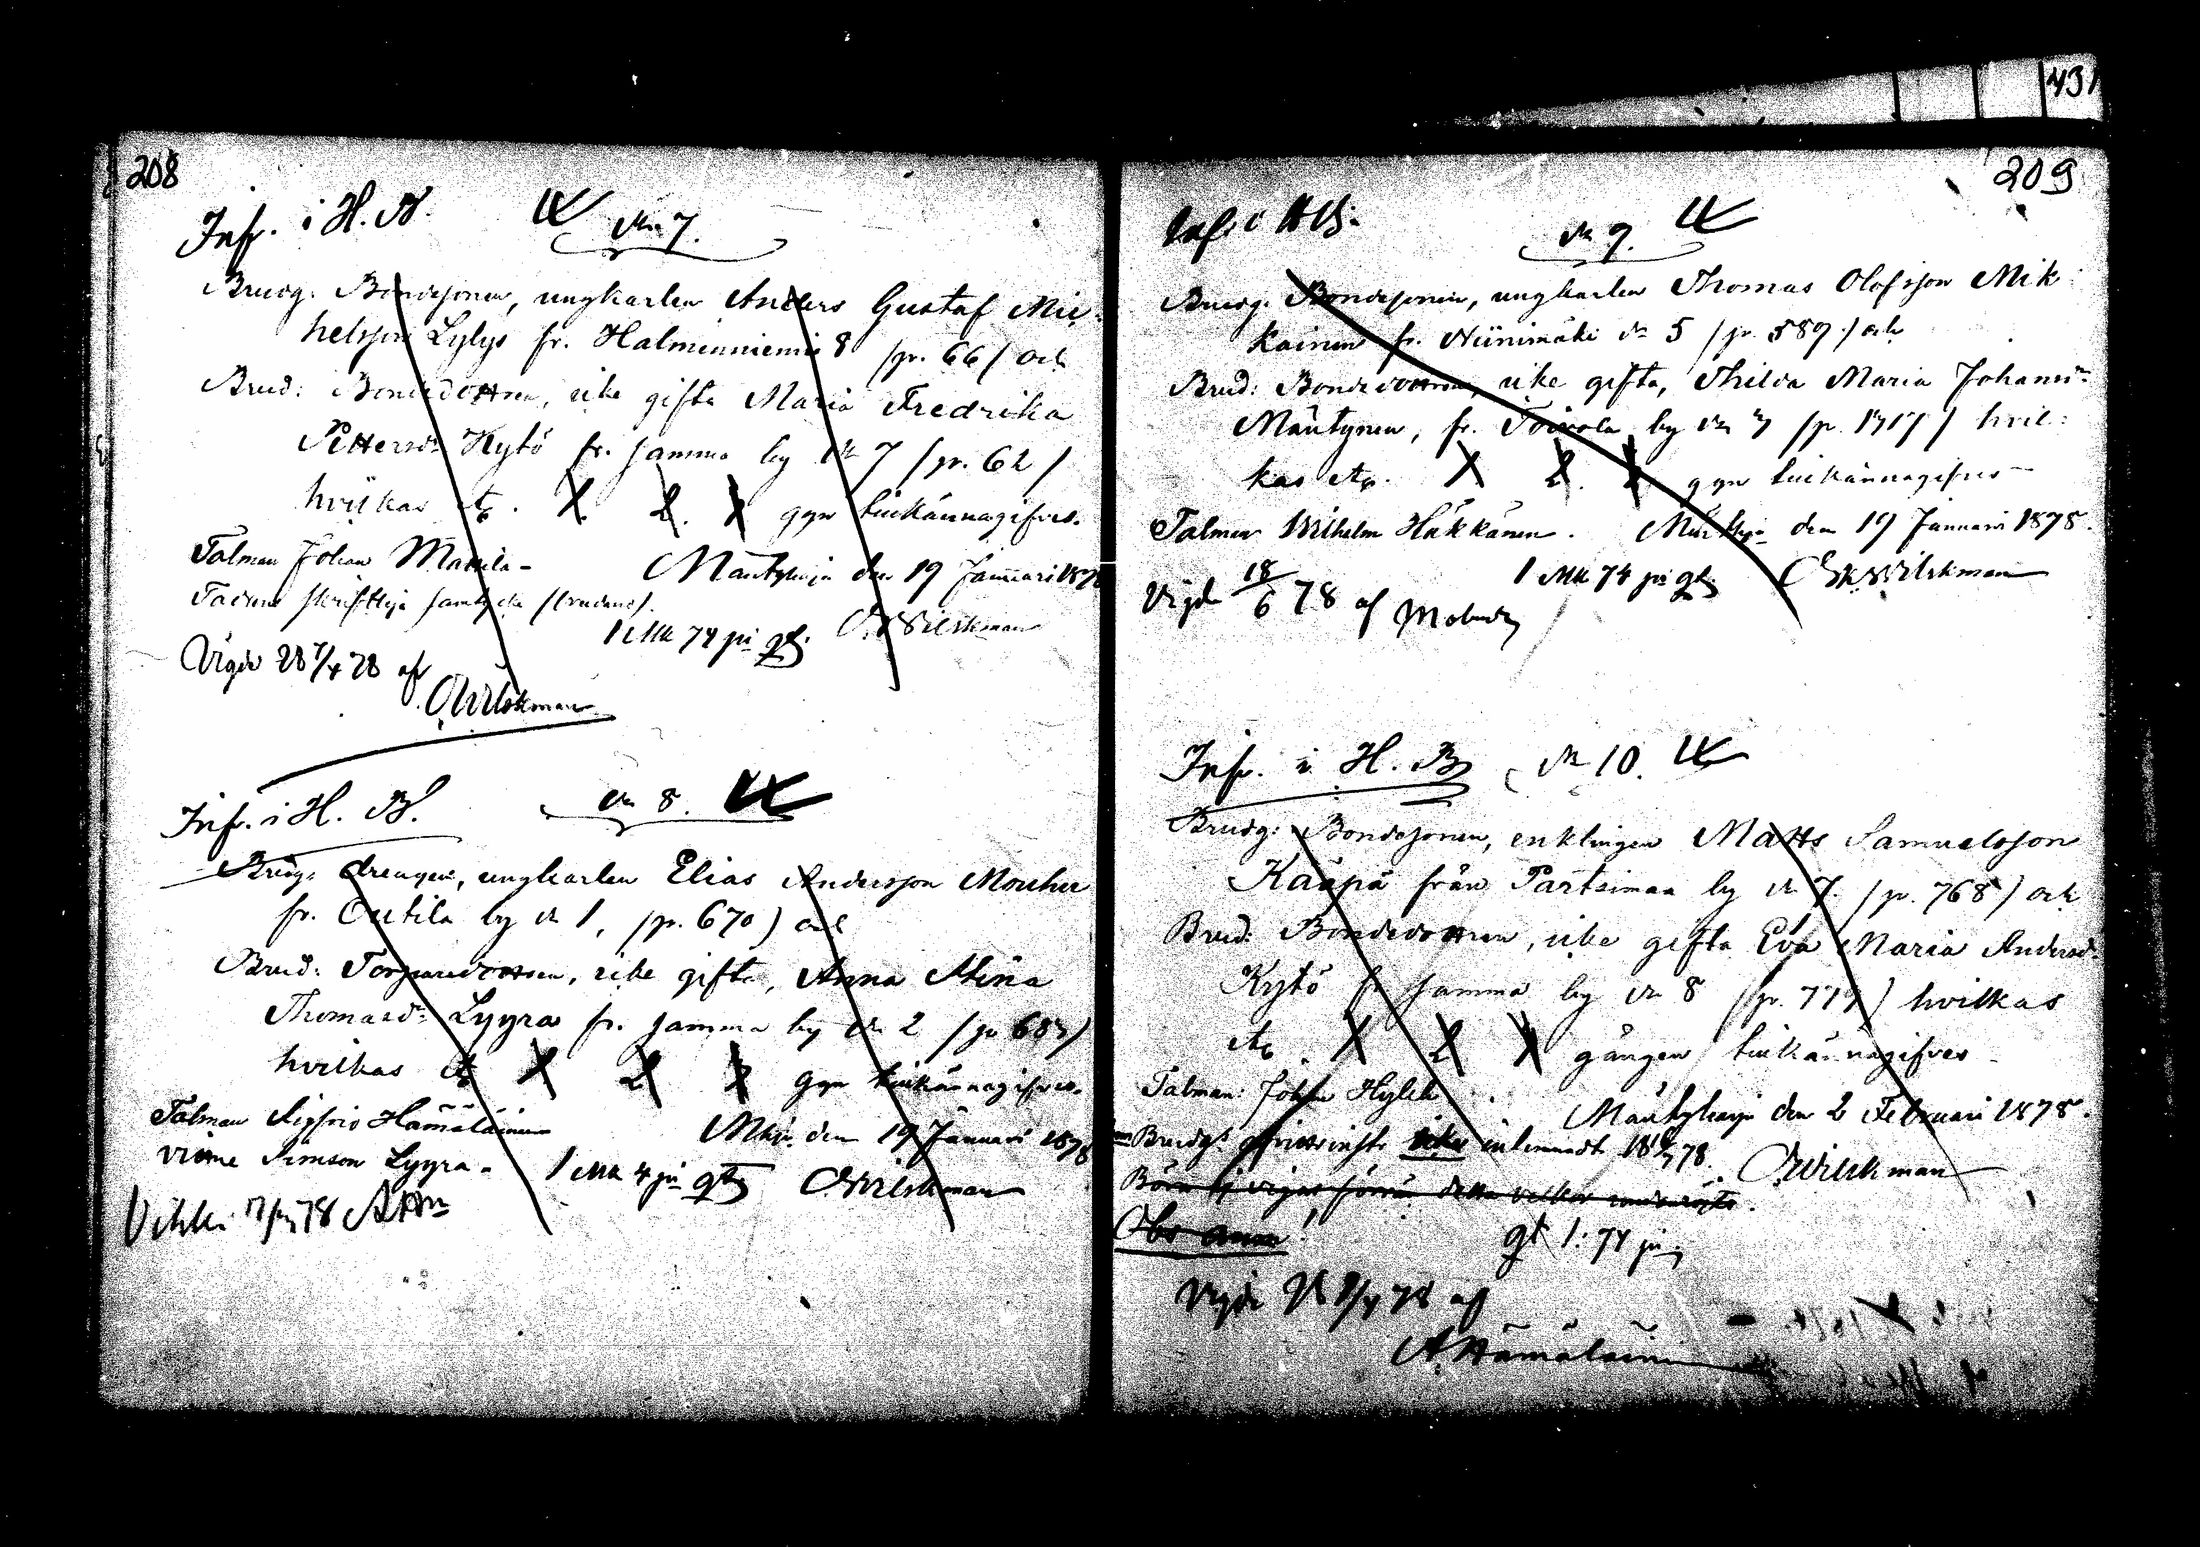 208
Inf. i H. B. № 7.
Brudg: Bondesonen, ungkarlen Anders Gustaf Mic-
helsson Lylys fr. Halmenniemi 8 /p. 66/ och
Brud: Bondedottren, icke gifta Maria Fredrika
Pettersdr Kytö fr. samma by № 7 /p. 62/
hvilkas etc. X 2. X ggn tillkännagifves.
Talman Johan Manila
Mäntyharju den 19 Januari 1878
Fadrens skriftliga samtycke /brudens/.
1 Mk 74 pi gt. OWilskman
Vigde 28 7/4 78 af
OWilskman
Inf. i H. B. № 8.
Brudg: drengen, ungkarlen Elias Andersson Mouhu
fr. Outila by № 1, /p. 670) och
Brud: Torparedottren, icke gifta, Anna Stina
Thomasdr Lyyra fr. samma by № 2 /p 683)
hvilkas etc X 2 X ggn tillkännagifves.
Talman Sigfrid Hämäläinen
Mhju. den 19 Januari 1878
vittne Simson Lyyra
1 Mk 4 pi gt OWilskman
Vihki 78
209
Inf. i H. B. № 9.
Brudg: Bondesonen, ungkarlen Thomas Olofsson Mik-
kainen fr. Niinimäki № 5 /p. 589./ och
Brud: Bondedottren, icke gifta, Thilda Maria Johansdr
Mäntynen, fr. Toivola by № 7 /p. 1317/ hvil-
kas etc. X 2. X ggn tillkännagifves
Talman Wilhelm Häkkänen. Mäntyhju den 19 Januari 1878.
1 Mk 74 pi gt. OWilskman
Vigde 18/6 78 af
Inf. i H. B. № 10.
Brudg: Bondesonen, enklingen Matts Samuelsson
Kääpä från Pärtsimaa by № 7. /p. 768/ och
Brud: Bondedottren, icke gifta Eva Maria Andersdr
Kytö fr samma by № 8 /p. 779/ hvilkas
etc. X 2 X gången tillkännagifves
Talman: Johan Hylek
Mäntyharju den 2 Februari 1878.
Brudgs inlemnadt 78. OWilskman
Obs anm!
gt 1: 74 pi
Vigde 78 af
AHämäläinen
431